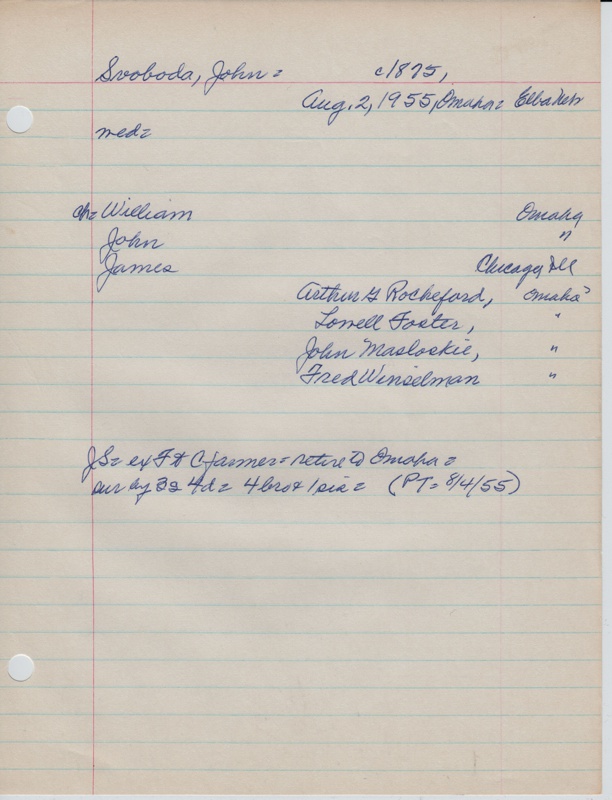 Svoboda, John = c1875,
Aug. 2, 1955, Omaha = Elba Nebr
med=
ch= William Omaha
John "
James Chicago Ill
Arthur G Rocheford, Omaha
Lowell Foster, "
John Masloskie, "
Fred Winselman "
JS= ex F & C farmer = retire to Omaha =
sur by 3s 4d = 4 bro & 1 sis = (PT = 8/4/55)